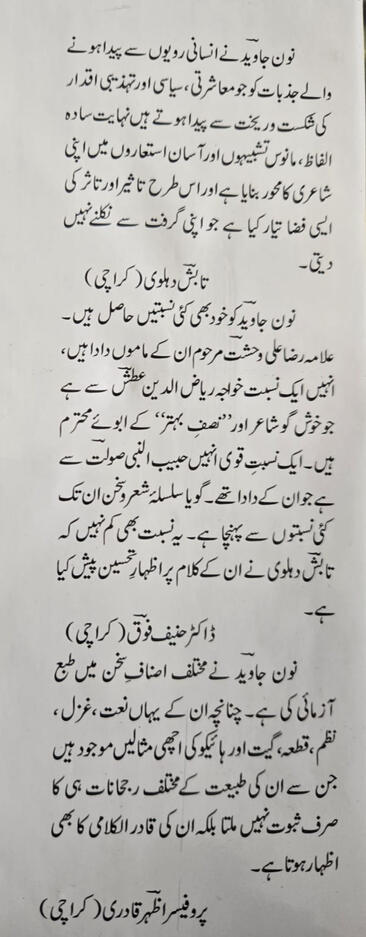 نون جاوید نے انسانی رویوں سے پیدا ہونے
والے جذبات کو جو معاشرتی، سیاسی اور تہذیبی اقدار
کی شکست و ریخت سے پیدا ہوتے ہیں نہایت سادہ
الفاظ، مانوس تشبیہوں اور آسان استعاروں میں اپنی
شاعری کا محور بنایا ہے اور اس طرح تاثیر اور تاثر کی
ایسی فضا تیار کیا ہے جو اپنی گرفت سے نکلنے نہیں
دیتی۔
تابشؔ دہلوی (کراچی)
نون جاوید کو خود بھی کئی نسبتیں حاصل ہیں۔
علامہ رضا علی وحشتؔ مرحوم ان کے ماموں دادا ہیں،
انہیں ایک نسبت خواجہ ریاض الدین عطشؔ سے ہے
جو خوش گو شاعر اور ”نصفِ بہتر“ کے ابوئے محترم
ہیں۔ ایک نسبتِ قوی انہیں حبیب النبی صولتؔ سے
ہے جو ان کے دادا تھے۔ گویا سلسلۂ شعر و سخن ان تک
کئی نسبتوں سے پہنچا ہے۔ یہ نسبت بھی کم نہیں کہ
تابشؔ دہلوی نے ان کے کلام پر اظہارِ تحسین پیش کیا
ہے۔
ڈاکٹر حنیف فوقؔ (کراچی)
نون جاوید نے مختلف اصنافِ سخن میں طبع
آزمائی کی ہے۔ چنانچہ ان کے یہاں نعت، غزل،
نظم، قطعہ، گیت اور ہائیکو کی اچھی مثالیں موجود ہیں
جن سے ان کی طبیعت کے مختلف رجحانات ہی کا
صرف ثبوت نہیں ملتا بلکہ ان کی قادر الکلامی کا بھی
اظہار ہوتا ہے۔
پروفیسر اظہرؔ قادری (کراچی)